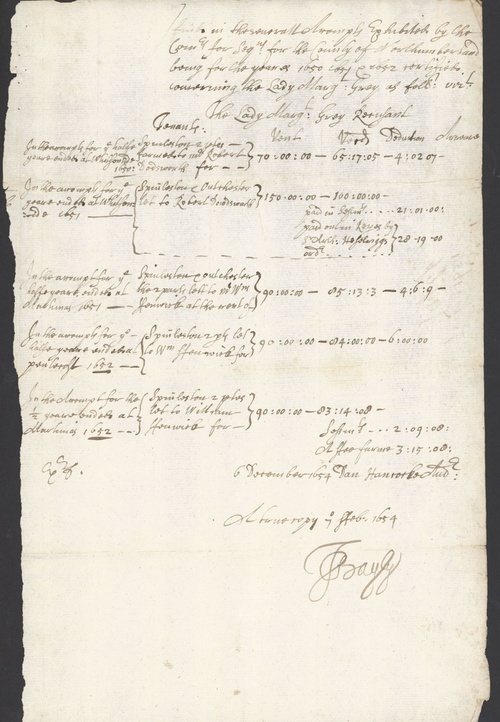 in the severall Accompts Exhibited by the
Com.rs for Seq.n for the County of Northumberland
being for the yeares 1650 1651 & 1652 certifieth
concerning the Lady Marg.t: Grey as foll: viz.t
The Lady Marg.t: Grey Recusant
Tenants: Rent Recd Deduction Arreares
In the accompt for ye halfe Spinleston 2 ptes
yeare ended at Whitsond farmed to mr Robert 70:00:00 - 65:17:05 - 4:02:07 -
1650: Dodsworth for - -
In the accompt for ye Spinleston & Outchester 150:00:00 - 100:00:00 -
yeare ended at Whitson let to Robert Dodsworth
tide 1651
paid in Sessmt . . . 21:01:00:
paid out in Keyes by
Sr Arth: Heselriggs 28:19:00
ordr . . . . . .
In the accompt for ye Spinleston & outchester
halfe yeare ended at the 2 parts lett to mr Wm 90:00:00 - 85:13:3 - 4:6:9 -
Martinmas 1651 - Fenwick at the rent of
In the accompt for ye Spinleston 2 pts let
halfe yeare ended at to Wm Fenwick for 90:00:00 - 84:00:00 - 6:00:00
pentecost 1652
In the Accompt for the Spinleston 2 ptes
1/2 yeare ended at let to William 90:00:00 - 83:14:08 -
Martinmas 1652 - - Fenwick for -
Sessmt . . . 2:09:08:
Affee farme 3:15:08:
Exd.
6 December 1654 Dan Hancocke Audr:
A true copy Feb. 1654